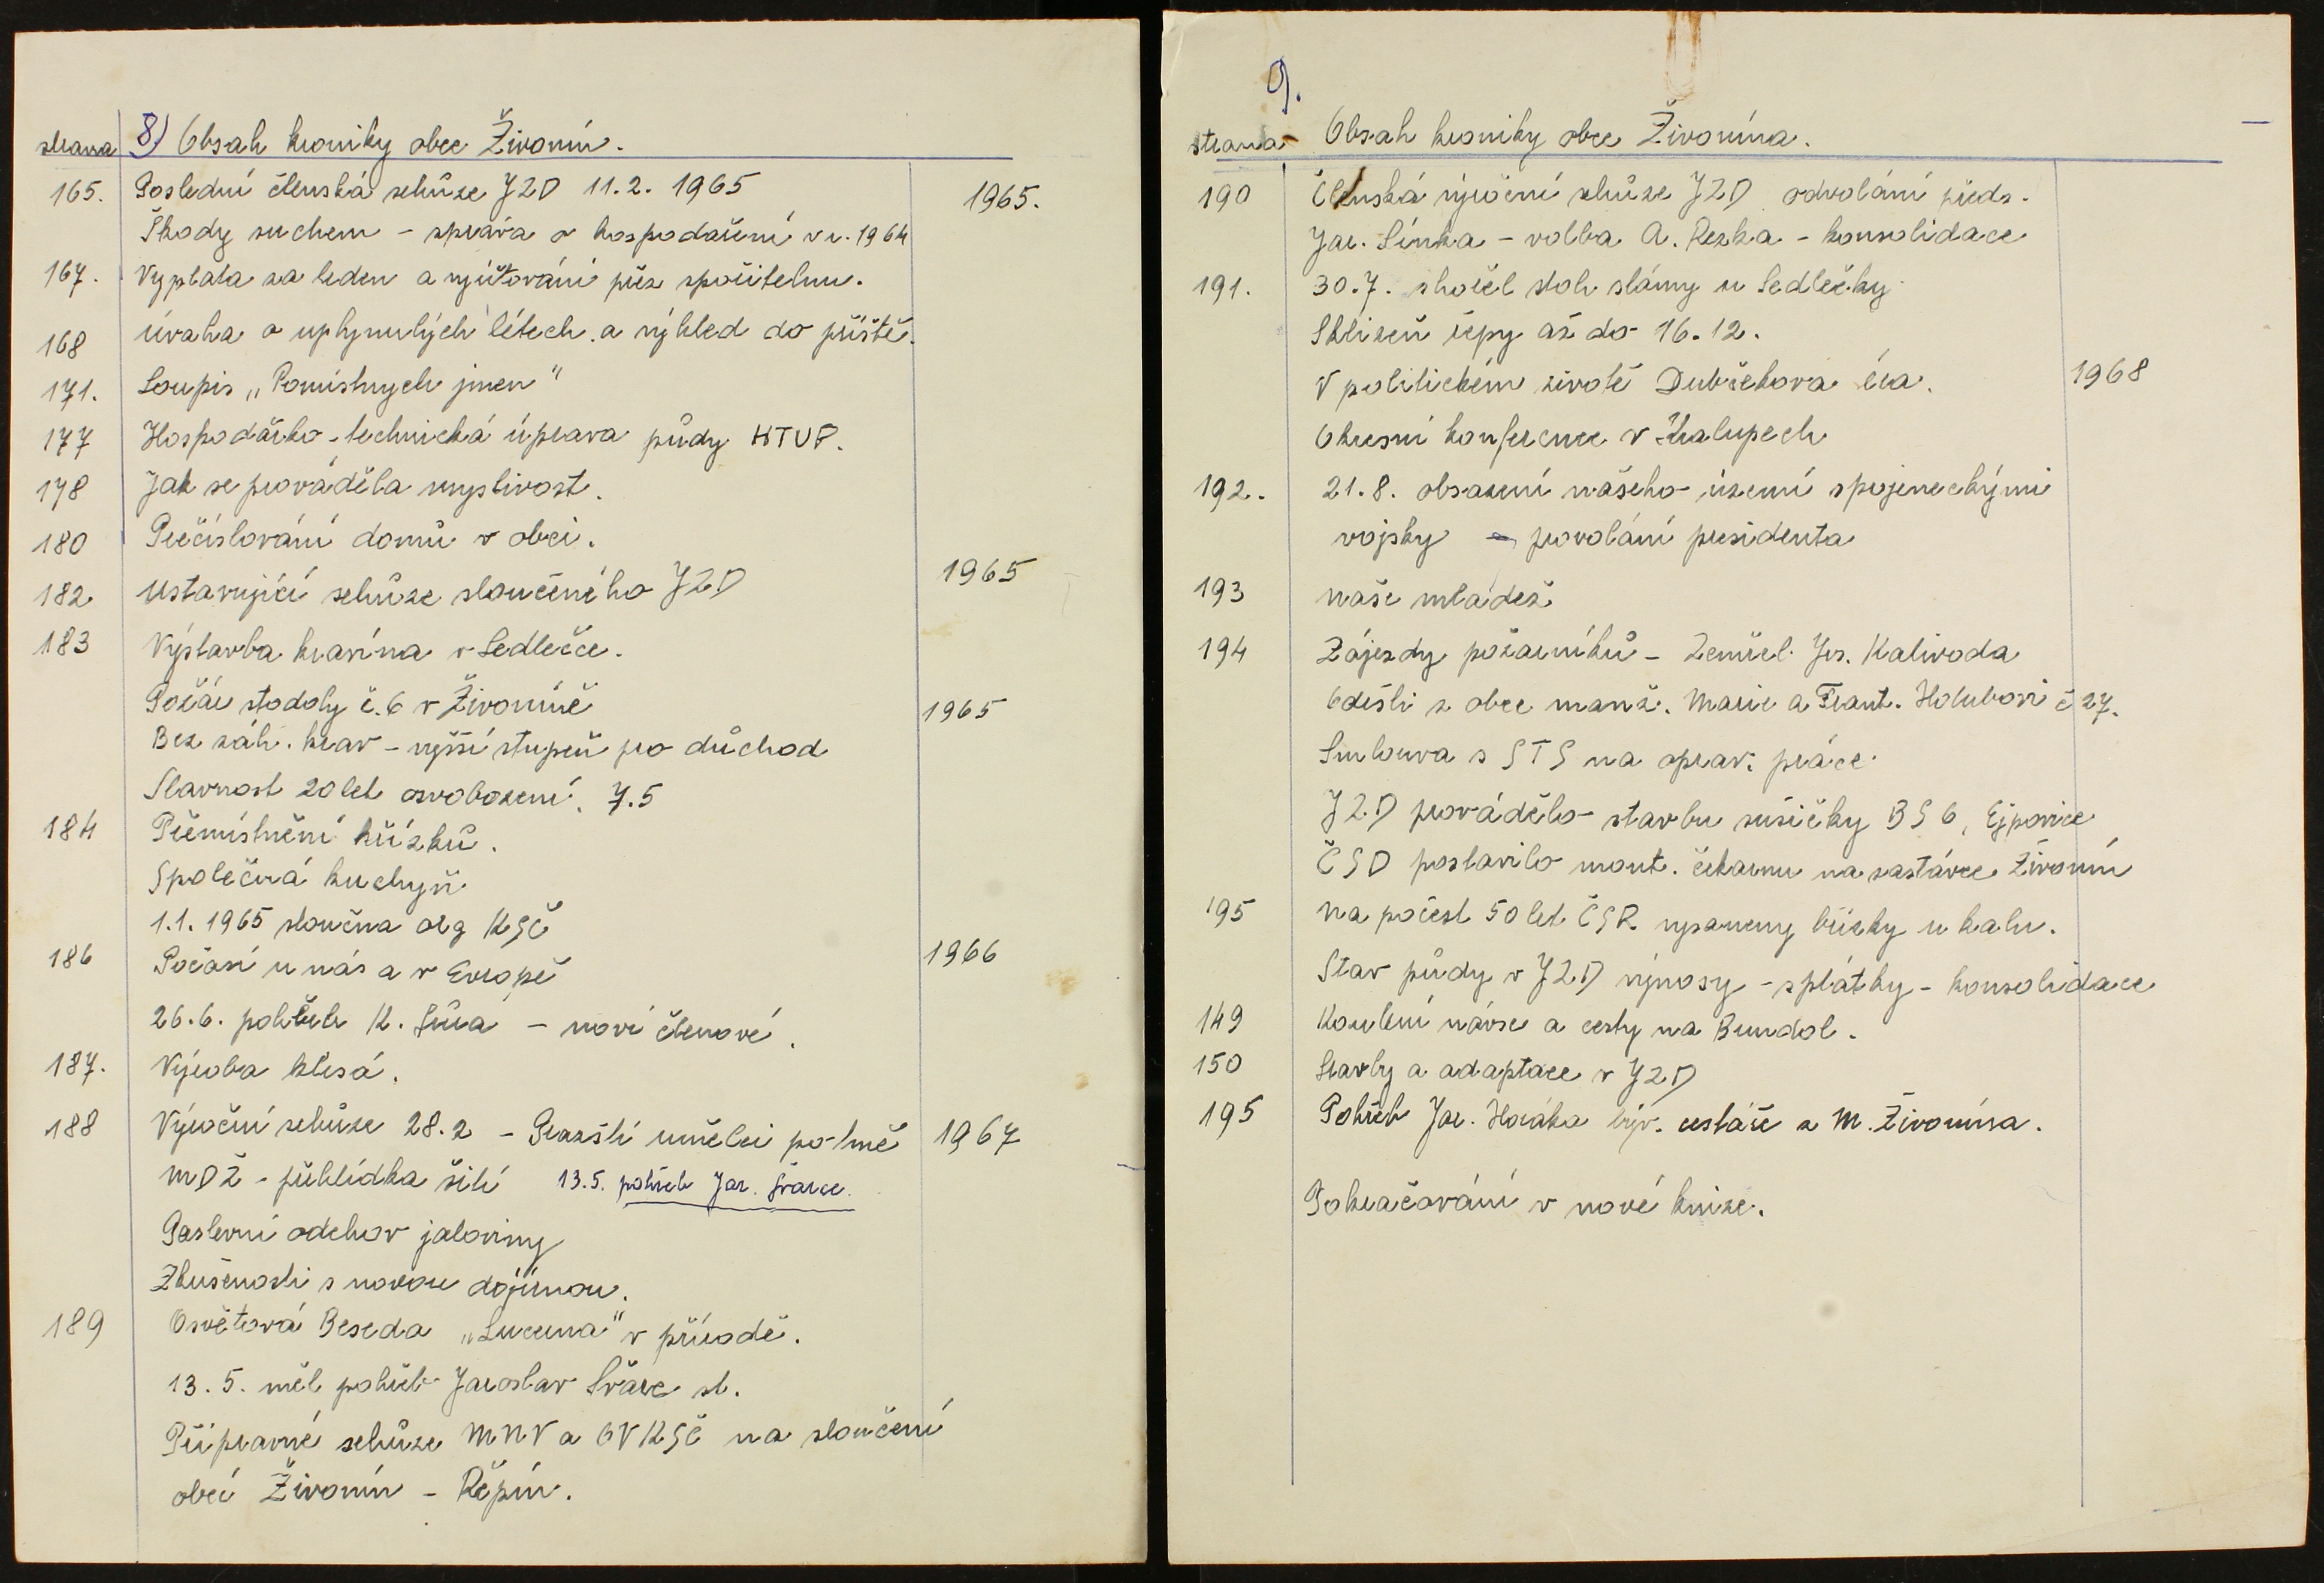 8) Obsah kroniky obce Živonín.
strana
165. Poslední členská schůze JZD 11.2. 1965 1965.
Škody suchem - zpráva o hospodaření v r. 1964
167. Výplata za leden a vyúčtování přes spořitelnu.
168 Úvaha o uplynulých létech a výhled do příště.
171. Soupis „Pomístnych jmen"
177 Hospodářko-technická úprava půdy HTUP.
178 Jak se prováděla myslivost.
180 Přečíslování domů v obci.
182 Ustavující schůze sloučeného JZD 1965
183 Výstavba kravína v Sedlečce.
Požár stodoly č. 6 v Živoníně 1965
Bez záh. krav - vyšší stupeň pro důchod
Slavnost 20 let osvobození. 7.5
184 Přemístnění křížků.
Společná kuchyň
1.1. 1965 sloučna org KSČ
186 Počasí u nás a v Evropě 1966
26.6. pohřeb K. - noví členové.
187. Výroba klesá.
188 Výroční schůze 28.2 - Pražští umělci po tmě 1967
MDŽ - přehlídka šití 13.5. pohřeb Jar. Švarce.
Pastevní odchov jaloviny
Zkušenosti s novou dojírnou.
189 Osvětová Beseda „Lucerna" v přírodě.
13.5. měl pohřeb Jaroslav Švarc st.
Připravné schůze MNV a OV KSČ na sloučení
obcí Živonín - Řepín.
9.
strana Obsah kroniky obce Živonína.
190 Členská výroční schůze JZD odvolání předs.
Jar. Šimka - volba A. Rezka - konsolidace
191. 30.7. shořel stoh slámy u Sedlečky
Sklizeň řepy až do 16.12.
V politickém životě Dubčekova éra. 1968
Okresní konference v Kralupech
192. 21.8. obsazení našeho území spojeneckými
vojsky - provolání presidenta
193 naše mládež
194 Zájezdy požárníků - Zemřel Jos. Kalivoda
Odešli z obce manž. Marie a Frant. Holubovi č 27.
Smlouva s STS na oprav. práce
JZD provádělo stavbu sušičky BS 6, Ejpovice
ČSD postavilo mont. čekárnu na zastávce Živonín
195 Na počest 50 let ČSR vysazeny břízky u kalu.
Stav půdy v JZD výnosy - splátky - konsolidace
149 Kouleni návse a cesty na Brundol.
150 Stavby a adaptace v JZD
195 Pohřeb Jar. Horáka býv. cestáře z M. Živonína.
Pokračování v nové knize.